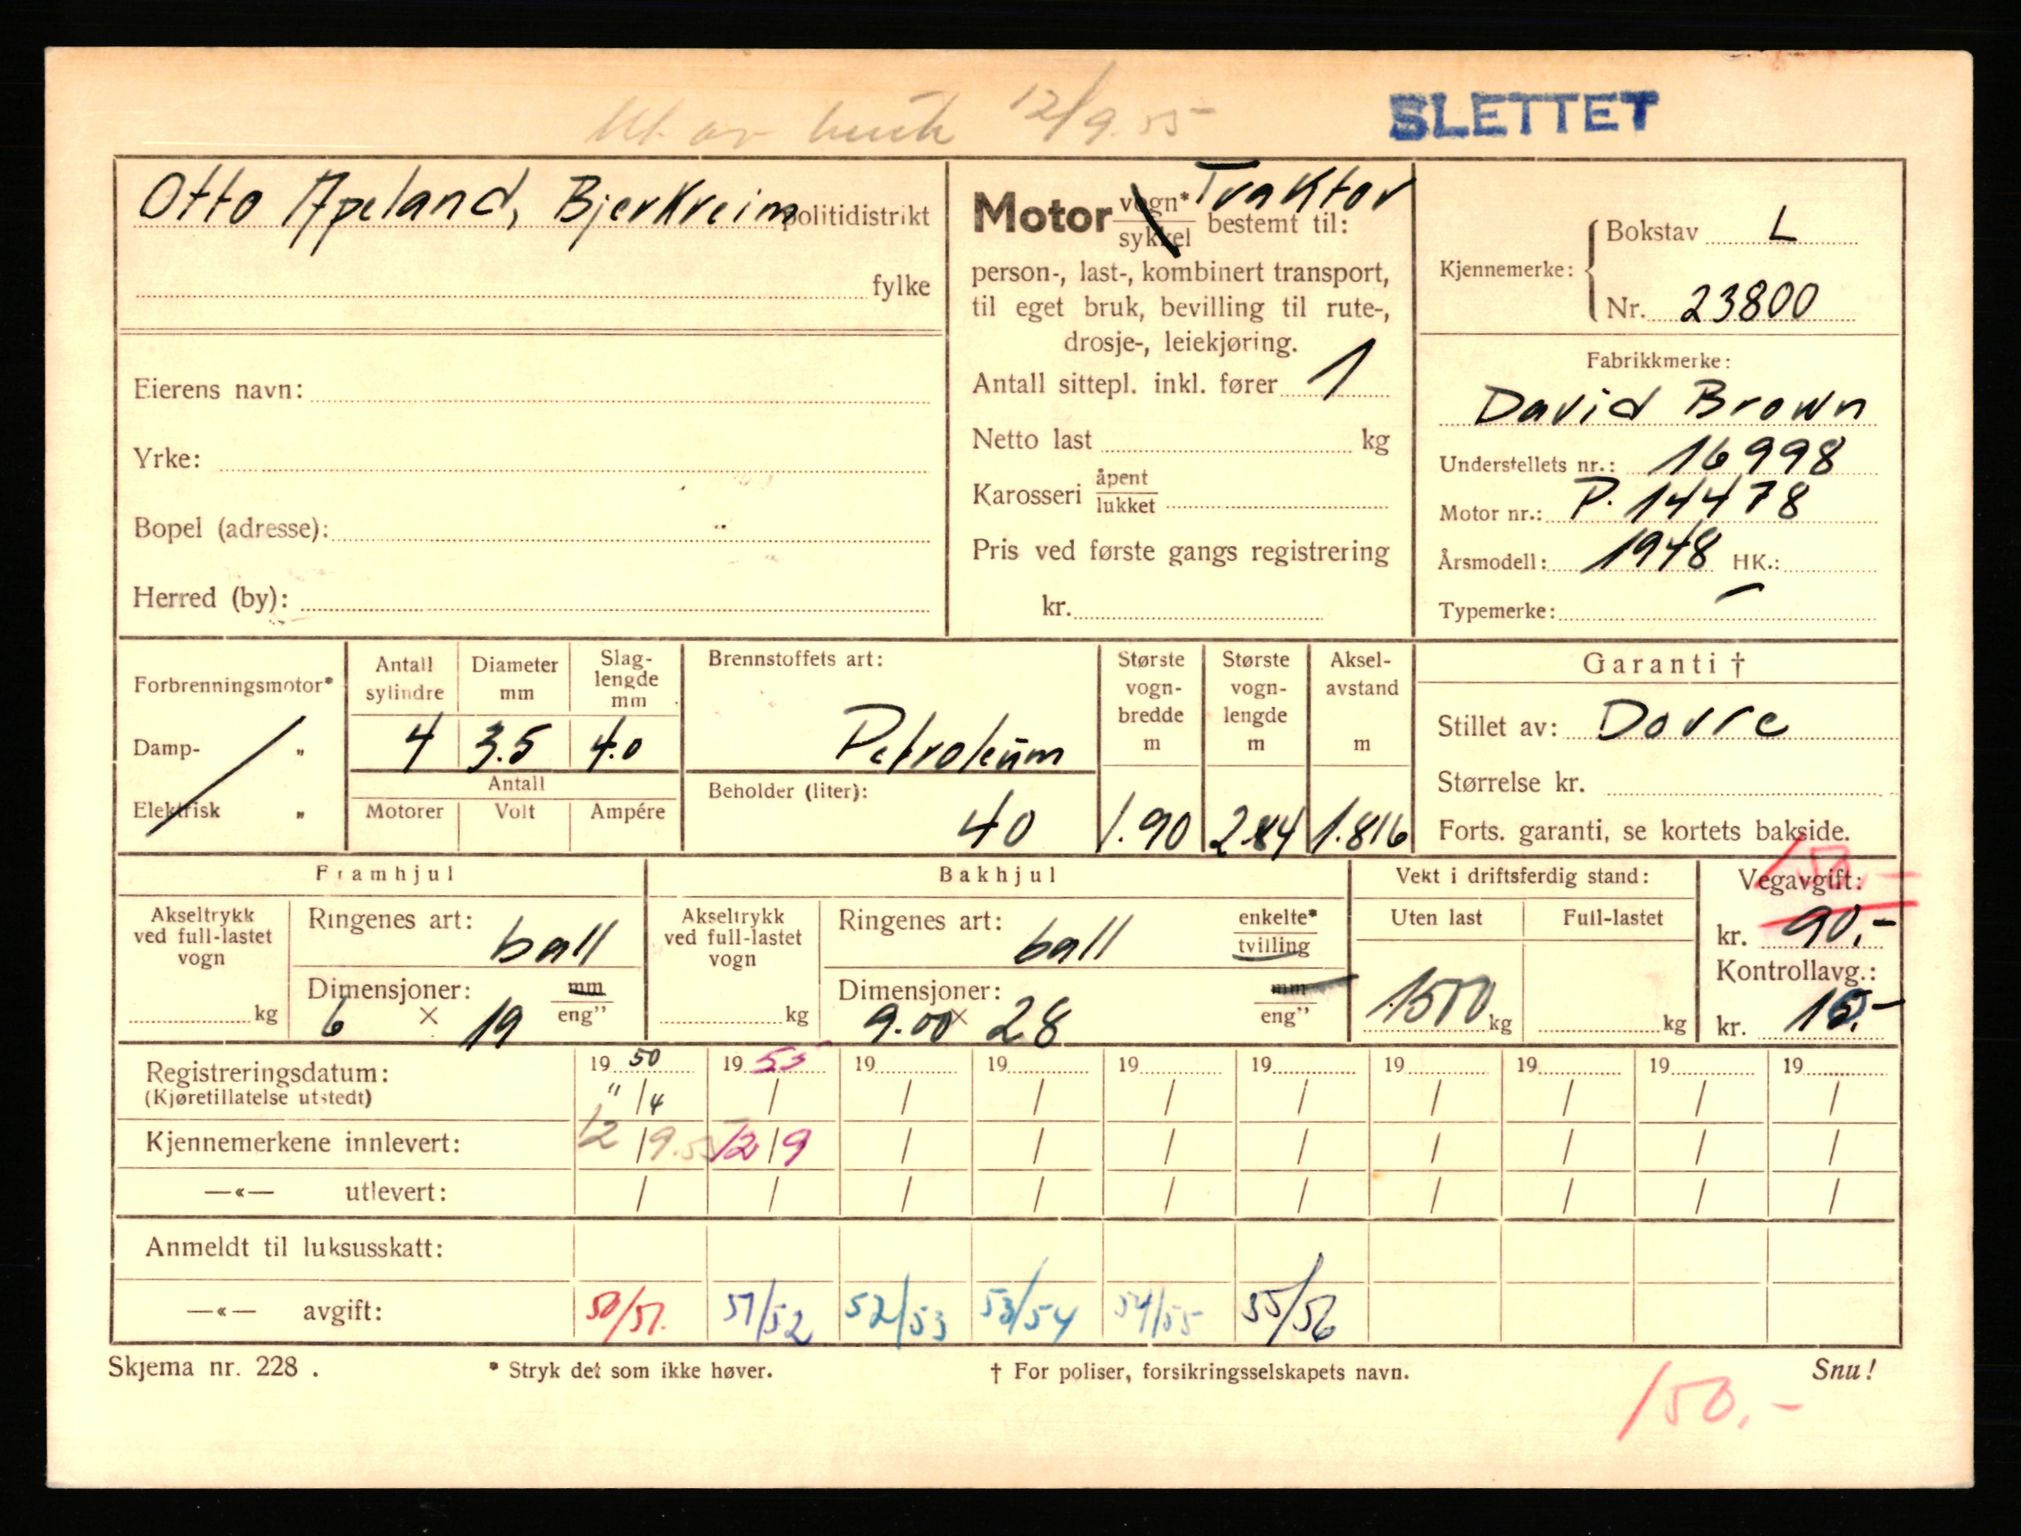 Ut av bruk 12/9.55
SLETTET
Otto Apeland, Bjerkreim politidistrikt
fylke
Eierens navn:
Yrke:
Bopel (adresse):
Herred (by):
Motor vogn* sykkel Traktor bestemt til:
person-, last-, kombinert transport,
til eget bruk, bevilling til rute-,
drosje-, leiekjøring.
Antall sittepl. inkl. fører 1
Netto last kg
Karosseri åpent lukket
Pris ved første gangs registrering
kr.
Kjennemerke: Bokstav L
Nr. 23800
Fabrikkmerke:
David Brown
Understellets nr.: 16998
Motor nr.: P. 14478
Årsmodell: 1948 HK.:
Typemerke: –
Forbrenningsmotor*
Damp- „
Elektrisk „
Antall sylindre
Diameter mm
Slag-lengde mm
4 3.5 4.0
Antall
Motorer Volt Ampére
Brennstoffets art:
Petroleum
Beholder (liter):
40
Største vogn-bredde m
1.90
Største vogn-lengde m
2.84
Aksel-avstand m
1.816
Garanti †
Stillet av: Dovre
Størrelse kr.
Forts. garanti, se kortets bakside.
Framhjul
Akseltrykk ved full-lastet vogn
kg
Ringenes art: ball
Dimensjoner: mm eng”
6 × 19
Bakhjul
Akseltrykk ved full-lastet vogn
kg
Ringenes art: ball enkelte* tvilling
Dimensjoner: mm eng”
9.00 × 28
Vekt i driftsferdig stand:
Uten last Full-lastet
1500 kg kg
Vegavgift:
kr. 90,-
Kontrollavg.:
kr. 10,-
Registreringsdatum: 19 50 19 55 19 19 19 19 19 19 19 19
(Kjøretillatelse utstedt) "/4 / / / / / / / / /
Kjennemerkene innlevert: 12/9.55 12/9 / / / / / / / /
—«— utlevert: / / / / / / / / / /
Anmeldt til luksusskatt:
—«— avgift: 50/51. 51/52 52/53 53/54 54/55 55/56
Skjema nr. 228 . * Stryk det som ikke høver. † For poliser, forsikringsselskapets navn. Snu!
150.-